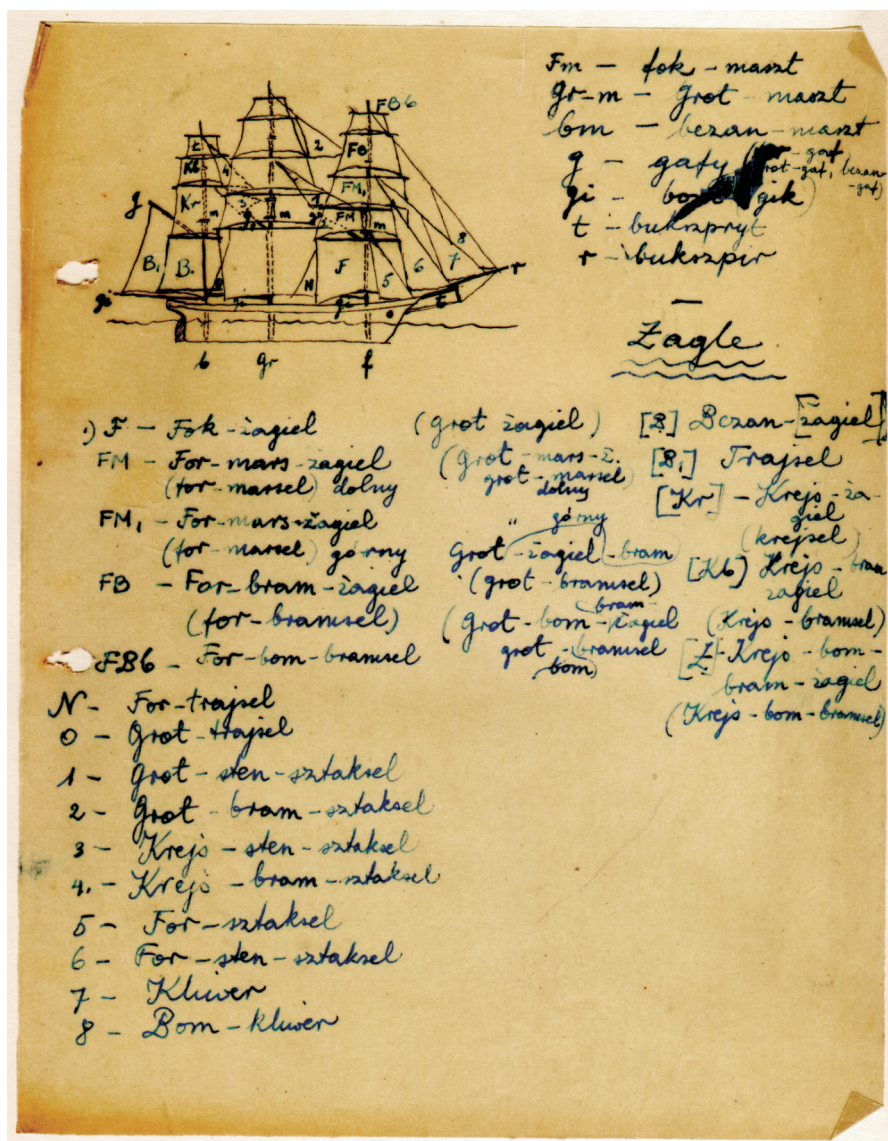 Fm — fok-maszt
gr-m — Grot-maszt
bm — bezan-maszt
g — gafy (for-gaf, grot-gaf, bezan-gaf)
gi — gik)
t — bukszpryt
r — bukszpir
FB6
t
2
FB
Kb
4
FM,
Kr
n
3
1
m
FM
m
g
8
B,
B.
F
6
7
r
5
N
gi
gi
o
t
b
gr
f
Żagle
1) F — Fok-żagiel
FM — For-mars-żagiel
(for-marsel) dolny
FM, — For-mars-żagiel
(for-marsel) górny
FB — For-bram-żagiel
(for-bramsel)
FB6 — For-bom-bramsel
N — For-trajsel
O — Grot-trajsel
1 — Grot-sten-sztaksel
2 — Grot-bram-sztaksel
3 — Krejs-sten-sztaksel
4. — Krejs-bram-sztaksel
5 — For-sztaksel
6 — For-sten-sztaksel
7 — Kliwer
8 — Bom-kliwer
(grot żagiel)
(Grot-mars-ż.
grot-marsel)
dolny
„ górny
Grot-żagiel-bram
(grot-bramsel)
bram-
(Grot-bom-żagiel
grot-bramsel
bom)
[B] Bezan-[żagiel]
[B,] Trajsel
[Kr] — Krejs-ża-
giel
(krejsel)
[Kb] Krejs-bram
żagiel
(Krejs-bramsel)
[t]-Krejs-bom-
bram-żagiel
(Krejs-bom-bramsel)